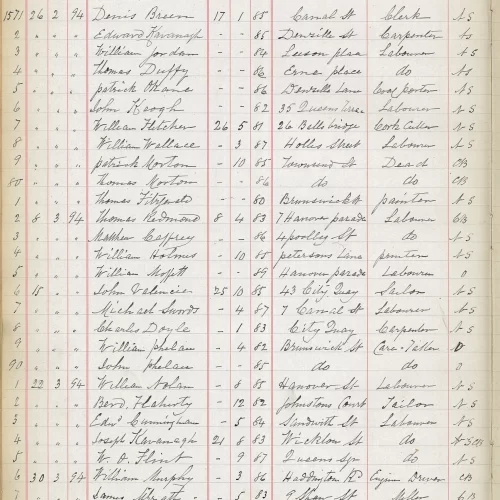 1571 26 2 94 Denis Breen 17 1 85 Canal St Clerk NS
2 " " " Edward Kavanagh - - 85 Denzille St Carpenter NS
3 " " " William Jordan - - 84 Leeson place Labourer NS
4 " " " Thomas Duffy - - 86 Erne place do NS
5 " " " patrick - - 86 Denzille Lane Carpenter NS
6 " " " John Keogh - - 82 35 Queens Labourer NS
7 " " " William Fletcher 26 5 81 26 Ballsbridge Cork Cutter NS
8 " " " William Wallace - 3 87 Holles Street Labourer NS
9 " " " patrick Norton - 10 85 Townsend St Dead CB
80 " " " Thomas Norton - - 86 do do CB
1 " " " Thomas Fitzgerald - - 80 Brunswick St painter NS
2 8 3 94 Thomas Redmond 8 4 83 7 Hanover parade Labourer CB
3 " " " Matthew Caffrey - - 86 4 pooley St do NS
4 " " " William Holmes - 10 85 petersons Lane painter NS
5 " " " William Moffett - - 89 Hanover parade Labourer 0
6 15 " " John Valencier 25 10 85 43 City Quay Sailor NS
7 " " " Michael Swords - 4 87 7 Canal St Labourer NS
8 " " " Charles Doyle - 1 83 City Quay Carpenter NS
9 " " " William phelan - 4 82 Brunswick St Care-Taker 0
90 " " " John phelan - - 85 do do 0
1 22 3 94 William Nolan - 8 85 Hanover St Labourer NS
2 " " " Bernd Flaherty - 12 82 Johnstons Court Tailor NS
3 " " " Edwd Cunningham - 5 84 Sandwith St Labourer NS
4 " " " Joseph Kavanagh 21 8 83 Wicklow St do NS CB
5 " " " W. J. Flint - 9 87 Queens Sqr do NS
6 30 3 94 William Murphy - 3 86 Haddington Rd Engine Driver CB
7 " " " James - 5 83 9 Shaw St NS